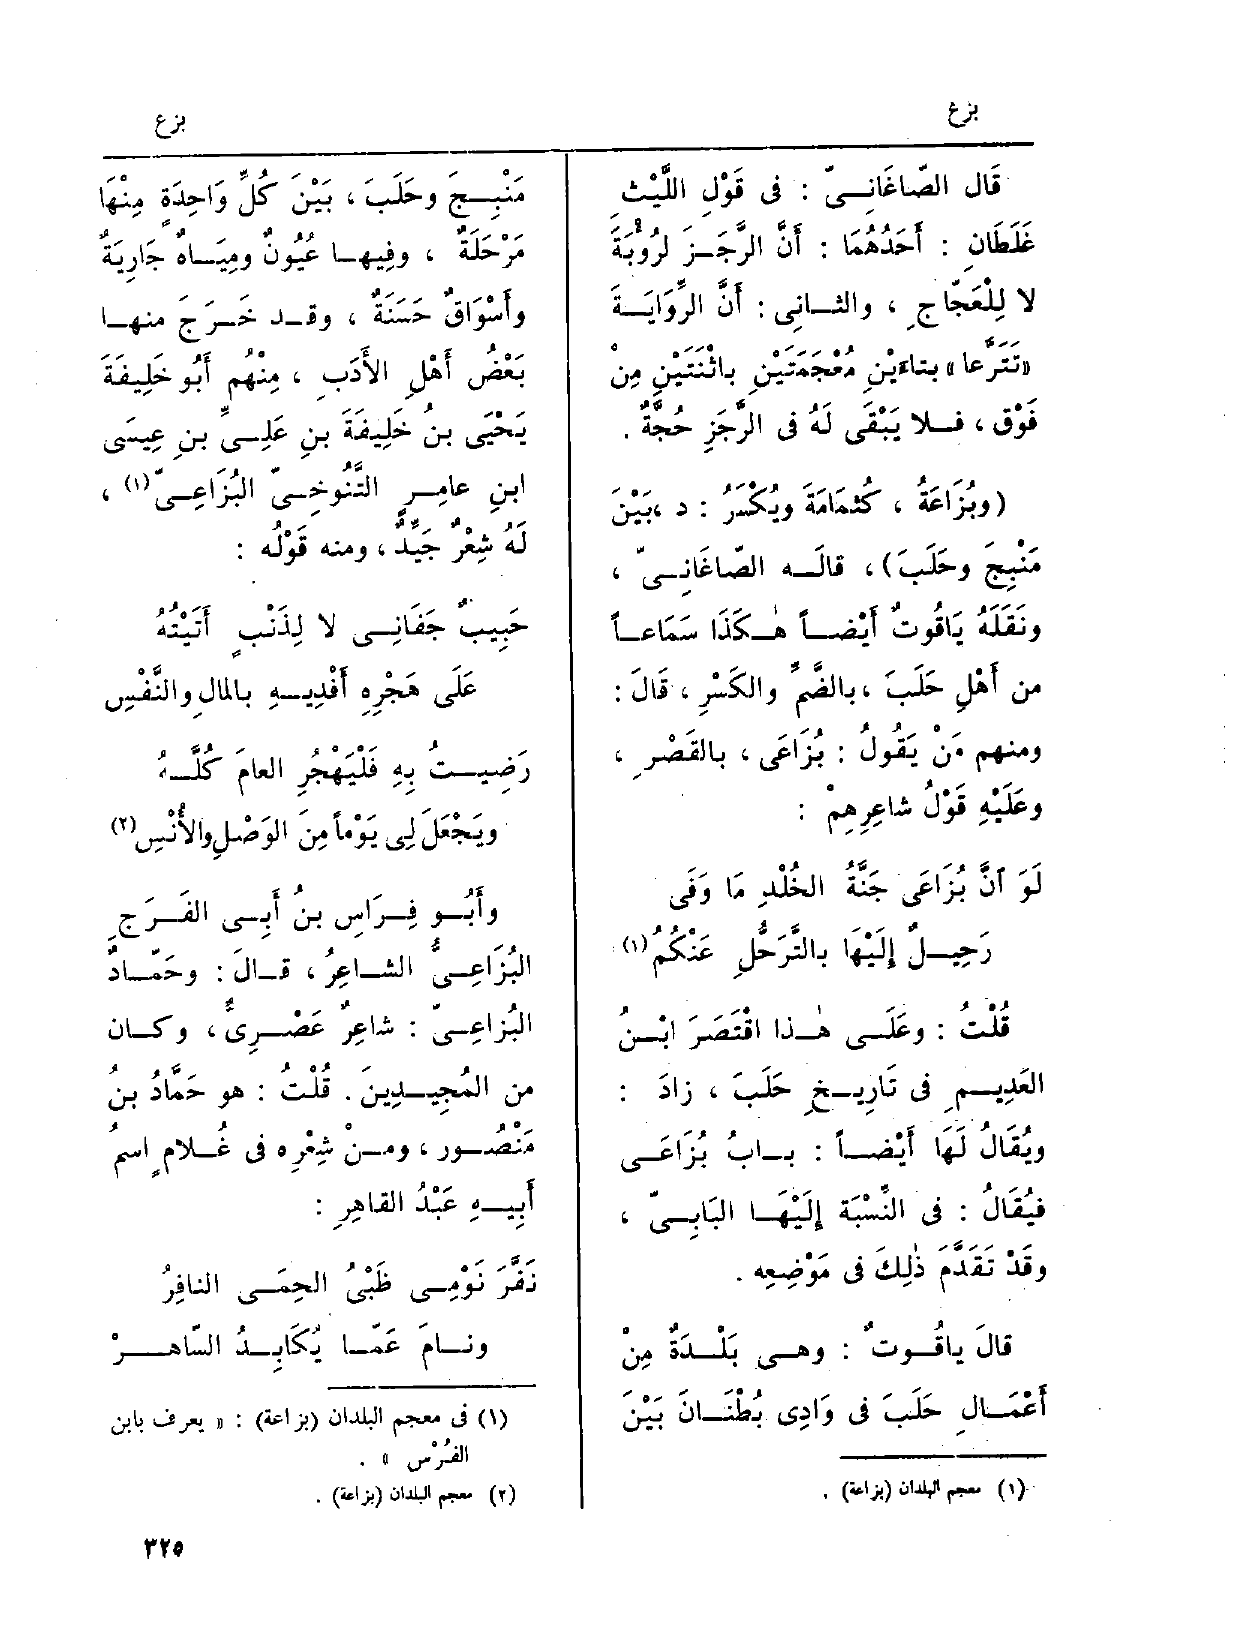 بزغ
بزع
قال الصّاغَانِىّ : فى قَوْلِ اللَّيْث
غَلَطَانِ : أَحَدُهُمَا : أَنَّ الرَّجَزَ لرُؤْبَةَ
لا لِلْعَجّاجِ ، والثانِى : أَنَّ الرِّوَايَةَ
«تَتَرَّعا» بتاءَيْنِ مُعْجَمَتَيْنِ باثْنَتَيْنِ مِنْ
فَوْق ، فلا يَبْقَى لَهُ فى الرَّجَزِ حُجَّةٌ .
(وبُزَاعَةُ ، كثُمَامَةَ ويُكْسَرُ : د ،بَيْنَ
مَنْبِجَ وحَلَبَ) ، قالَه الصّاغَانِىّ ،
ونَقَلَهُ يَاقُوتٌ أَيْضاً هٰكَذَا سَمَاعاً
من أَهْلِ حَلَبَ ،بالضَّمِّ والكَسْرِ ، قَالَ :
ومنهم مَنْ يَقُولُ : بُزَاعَى ، بالقَصْرِ ،
وعَلَيْهِ قَوْلُ شاعِرِهِمْ :
لَوَ آنَّ بُزَاعَى جَنَّةُ الخُلْدِ مَا وَفَى
رَحِيلٌ إِلَيْهَا بالتَّرَحُّلِ عَنْكُمُ (١)
قُلْتُ : وعَلَى هٰذا اقْتَصَرَ ابْنُ
العَدِيمِ فى تَارِيخِ حَلَبَ ، زادَ :
ويُقَالُ لَهَا أَيْضاً : بابُ بُزَاعَى
فيُقَالُ : فى النِّسْبَة إِلَيْهَا البَابِىّ ،
وقَدْ تَقَدَّمَ ذٰلِكَ فى مَوْضِعِه .
قالَ ياقُوتٌ : وهى بَلْدَةٌ مِنْ
أَعْمَالِ حَلَبَ فى وَادِى بُطْنَانَ بَيْنَ
(١) معجم البلدان (بزاعة) .
مَنْبِجَ وحَلَبَ ، بَيْنَ كُلِّ وَاحِدَةٍ مِنْهَا
مَرْحَلَةٌ ، وفِيها عُيُونٌ ومِيَاهٌ جَارِيَةٌ
وأَسْوَاقٌ حَسَنَةٌ ، وقد خَرَجَ منها
بَعْضُ أَهْلِ الأَدَبِ ، مِنْهُم أَبُو خَلِيفَةَ
يَحْيَى بنُ خَلِيفَةَ بنِ عَلِىِّ بنِ عِيسَى
ابنِ عامِرٍ التَّنُوخِىّ البُزَاعِىّ (١) ،
لَهُ شِعْرٌ جَيِّدٌ ، ومنه قَوْلُه :
حَبِيبٌ جَفَانِى لا لِذَنْبٍ أَتَيْتُهُ
عَلَى هَجْرِهِ أَفْدِيهِ بالمالِ والنَّفْسِ
رَضِيتُ بِهِ فَلْيَهْجُرِ العامَ كُلَّهُ
ويَجْعَلَ لِى يَوْماً مِنَ الوَصْلِ والأُنْسِ (٢)
وأَبُو فِرَاسِ بنُ أَبِى الفَرَجِ
البُزَاعِىُّ الشاعِرُ ، قالَ : وحَمّادٌ
البُزَاعِىّ : شاعِرٌ عَصْرِىٌّ ، وكان
من المُجِيدِينَ . قُلْتُ : هو حَمَّادُ بنُ
مَنْصُور ، ومنْ شِعْرِه فى غُلامٍ اسمُ
أَبِيهِ عَبْدُ القاهِرِ :
نَفَّرَ نَوْمِى ظَبْىُ الحِمَى النافِرُ
ونامَ عَمّا يُكَابِدُ السّاهِرْ
(١) فى معجم البلدان (بزاعة) : « يعرف بابن
الفُرْس » .
(٢) معجم البلدان (بزاعة) .
٣٢٥